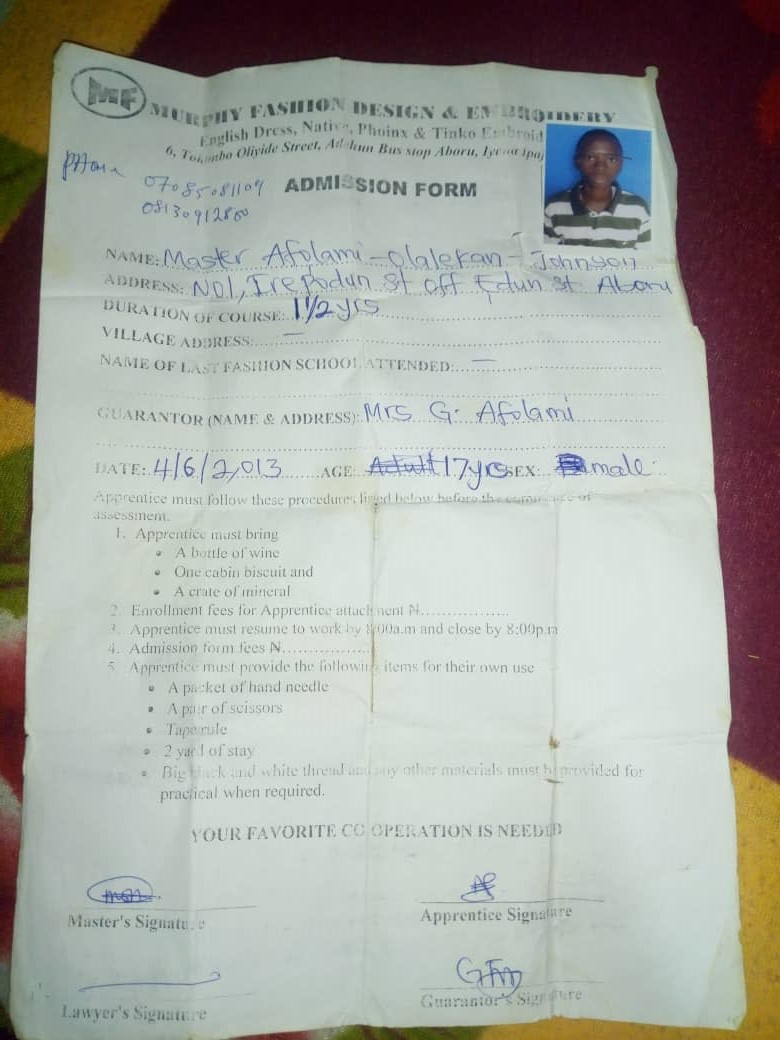 MF
MURPHY FASHION DESIGN & EMBROIDERY
English Dress, Native, Phoinx & Tinko Embroid
6, Tokunbo Oliyide Street, Adekun Bus stop Aboru, Iyana Ipaj
07085081109
08130912800
ADMISSION FORM
NAME: Master Afolami-Olalekan-Johnson
ADDRESS: NO1, Irepodun St off Edun St Aboru
DURATION OF COURSE: 1 1/2 yrs
VILLAGE ADDRESS: —
NAME OF LAST FASHION SCHOOL ATTENDED: —
GUARANTOR (NAME & ADDRESS): Mrs G. Afolami
DATE: 4/6/2,013 AGE: Adult 17yrs SEX: male
Apprentice must follow these procedures listed below before the of
assessment.
1. Apprentice must bring
• A bottle of wine
• One cabin biscuit and
• A crate of mineral
2. Enrollment fees for Apprentice attachment ₦................
3. Apprentice must resume to work by 8:00a.m and close by 8:00p.m
4. Admission form fees ₦................
5. Apprentice must provide the following items for their own use
• A packet of hand needle
• A pair of scissors
• Tape rule
• 2 yard of stay
• Big black and white thread and any other materials must be provided for
practical when required.
YOUR FAVORITE CO OPERATION IS NEEDED
Master's Signature
Apprentice Signature
Lawyer's Signature
Guarantor's Signature